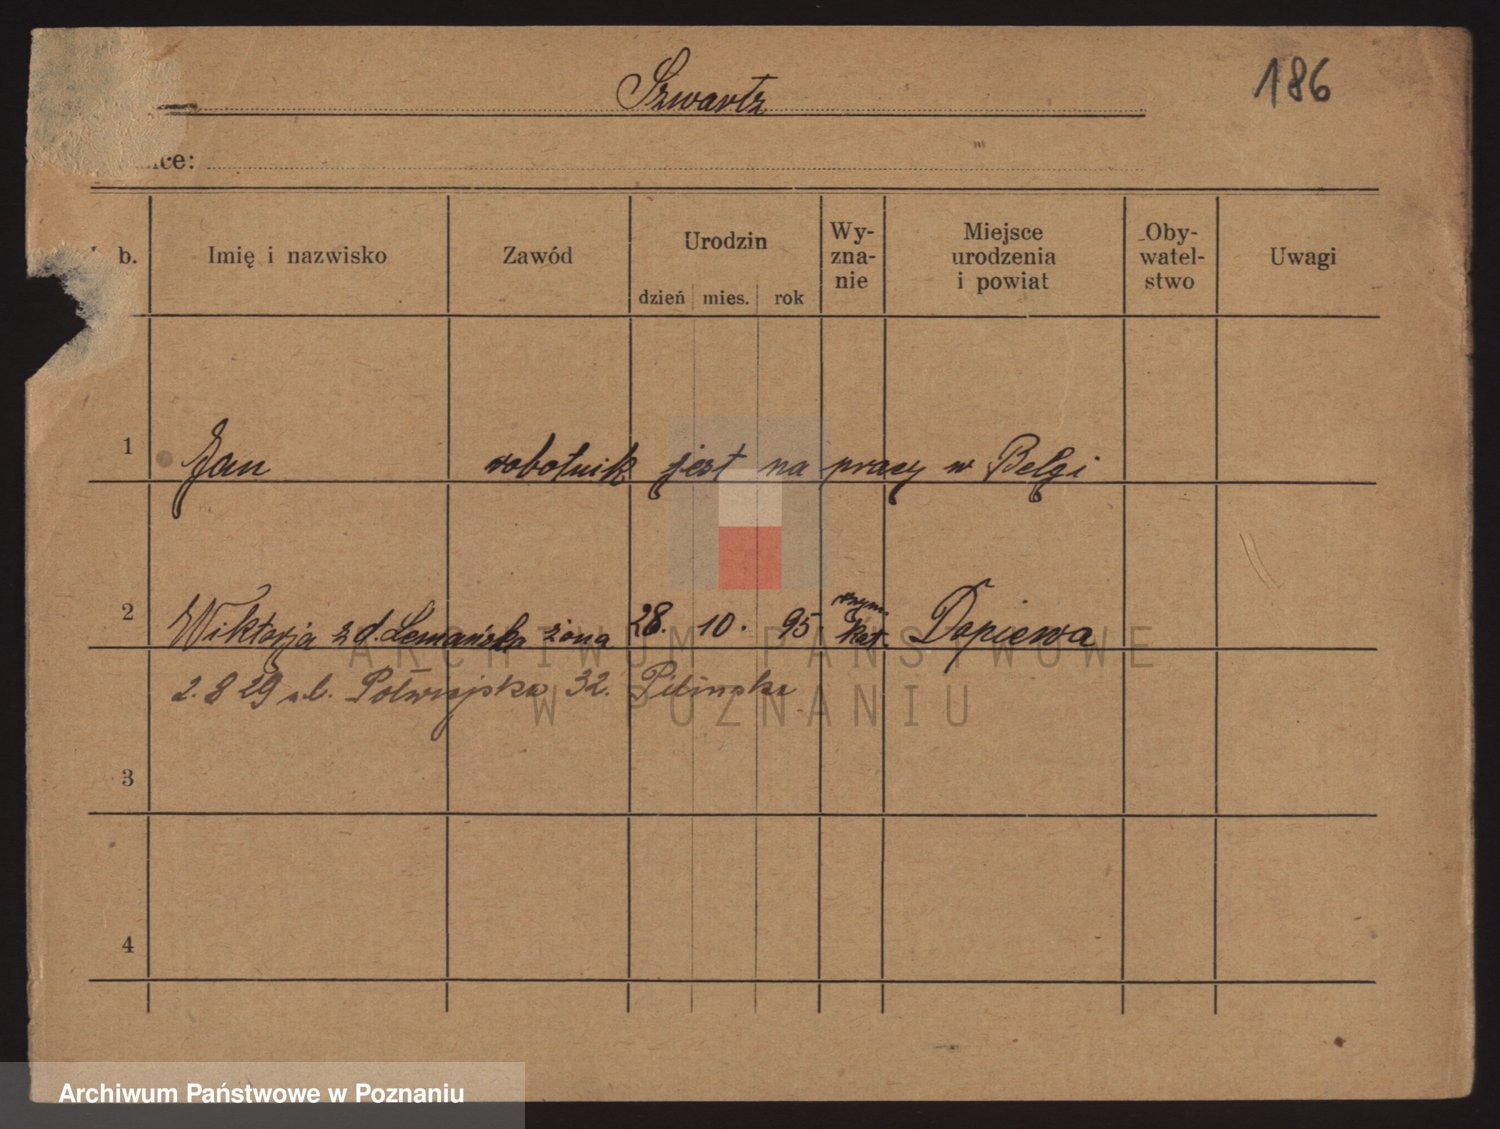 Szwartz
186
ce:
b.
Imię i nazwisko
Zawód
Urodzin
dzień mies. rok
Wy-
zna-
nie
Miejsce
urodzenia
i powiat
Oby-
watel-
stwo
Uwagi
1 Jan robotnik jest na pracy w Belgi
2 Wiktorja z d. Lemańska żona 28. 10. 95 rzym. kat. Dopiewa
2.8 29 ul. Półwiejska 32.
3
4
ARCHIWUM PAŃSTWOWE
W POZNANIU
Archiwum Państwowe w Poznaniu